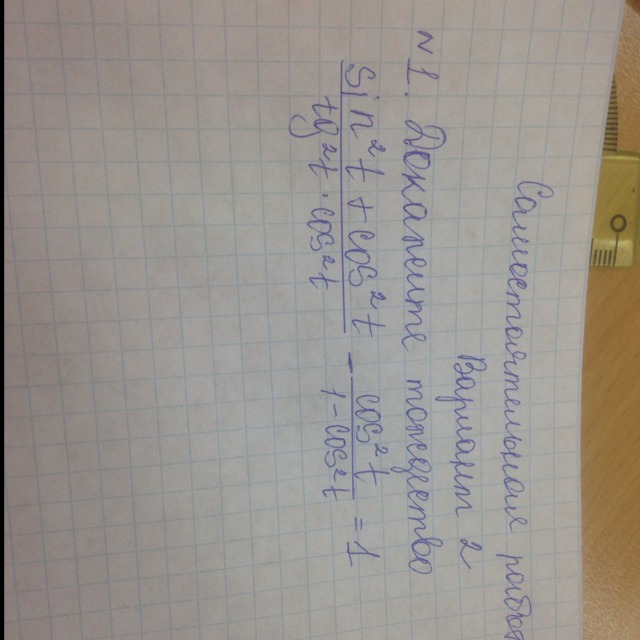 Самостоятельная работа
Вариант 2
№1. Докажите тождество
sin²t + cos²t / tg²t · cos²t - cos²t / 1 - cos²t = 1
0